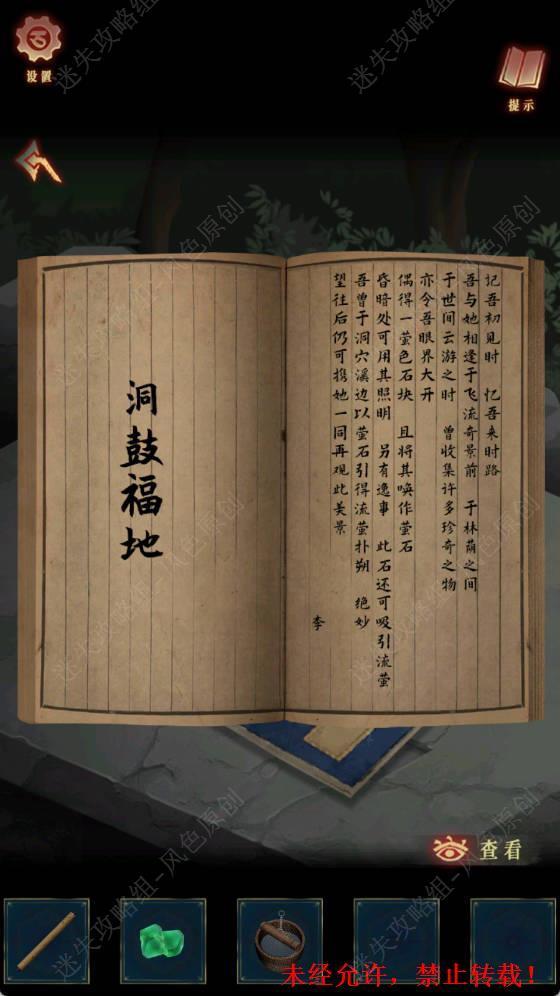 设置
提示
记吾初见时 忆吾来时路
吾与她相逢于飞流奇景前 于林荫之间
于世间云游之时 曾收集许多珍奇之物
亦令吾眼界大开
偶得一萤色石块 且将其唤作萤石
昏暗处可用其照明 另有逸事 此石还可吸引流萤
吾曾于洞穴溪边以萤石引得流萤扑朔 绝妙
望往后仍可携她一同再观此美景
李
洞鼓福地
查看
未经允许，禁止转载！
迷失攻略组-风色原创